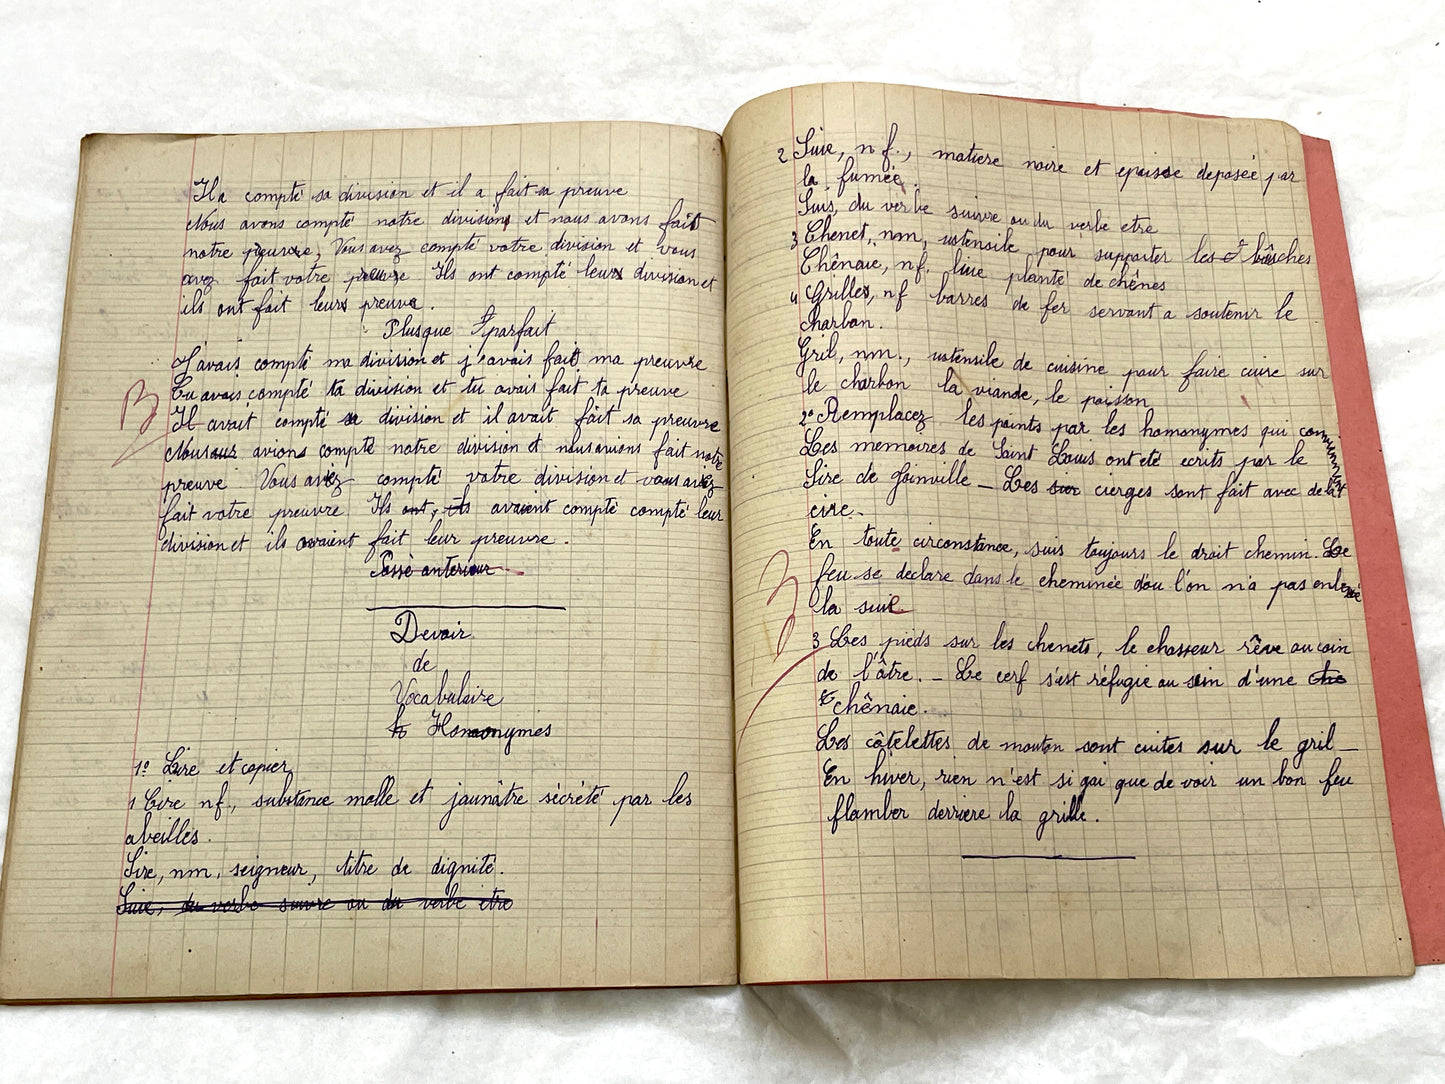 Il a compté sa division et il a fait sa preuve
Nous avons compté notre division et nous avons fait
notre preuvre, Vous avez compté votre division et vous
avez fait votre preuve Ils ont compté leurs division et
ils ont fait leurs preuve.
Plusque Iparfait
J'avais compté ma division et j'avais fait ma preuvre
Tu avais compté ta division et tu avais fait ta preuve
Il avait compté sa division et il avait fait sa preuvre
Nous avions compté notre division et nous avions fait notre
preuve Vous aviez compté votre division et vous aviez
fait votre preuvre Ils ont, ils avaient compté compté leur
division et ils avaient fait leur preuvre.
Passè anterieur
Devoir
de
Vocabulaire
Homonymes
1º Lire et copier
1 Cire nf., substance molle et jaunâtre sècrété par les
abeilles.
Sire, nm, seigneur, titre de dignité.
Suie, du verbe suivre ou du verbe etre
2 Suie, n f., matiere noire et epaisse deposée par
la fumée.
Suis, du verbe suivre ou du verbe etre
3 Chenet, nm, ustensile pour supporter les bûches
Chênaie, n f. lieu planté de chênes
4 Grilles, n f barres de fer servant a soutenir le
charbon.
Gril, nm., ustensile de cuisine pour faire cuire sur
le charbon la viande, le poisson
2º Remplacez les points par les homonymes qui
Les memoires de Saint Louis ont eté ecrits par le
Sire de Joinville _ Les sur cierges sont fait avec de la
cire.
En toute circonstance, suis toujours le droit chemin. Le
feu se declare dans le cheminée d'ou l'on n'a pas enlevé
la suie.
3 Les pieds sur les chenets, le chasseur rêve au coin
de l'âtre. _ Le cerf s'est réfugie au sein d'une che
chênaie.
Les côtelettes de mouton sont cuites sur le gril _
En hiver, rien n'est si gai que de voir un bon feu
flamber derriere la grille.